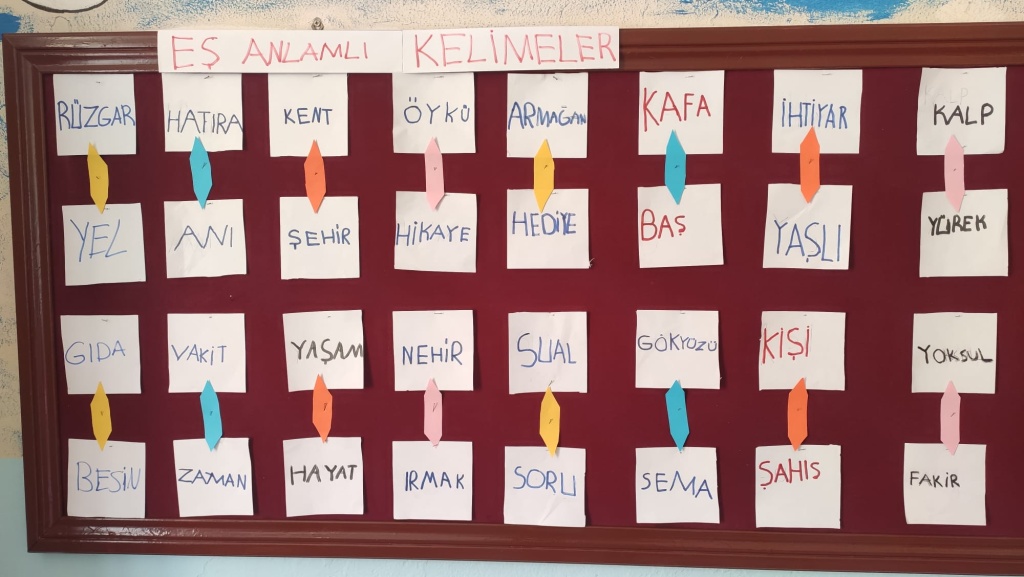 EŞ ANLAMLI KELİMELER
RÜZGAR HATIRA KENT ÖYKÜ ARMAĞAN KAFA İHTİYAR KALP
YEL ANI ŞEHİR HİKAYE HEDİYE BAŞ YAŞLI YÜREK
GIDA VAKİT YAŞAM NEHİR SUAL GÖKYÜZÜ KİŞİ YOKSUL
BESİN ZAMAN HAYAT IRMAK SORU SEMA ŞAHIS FAKİR